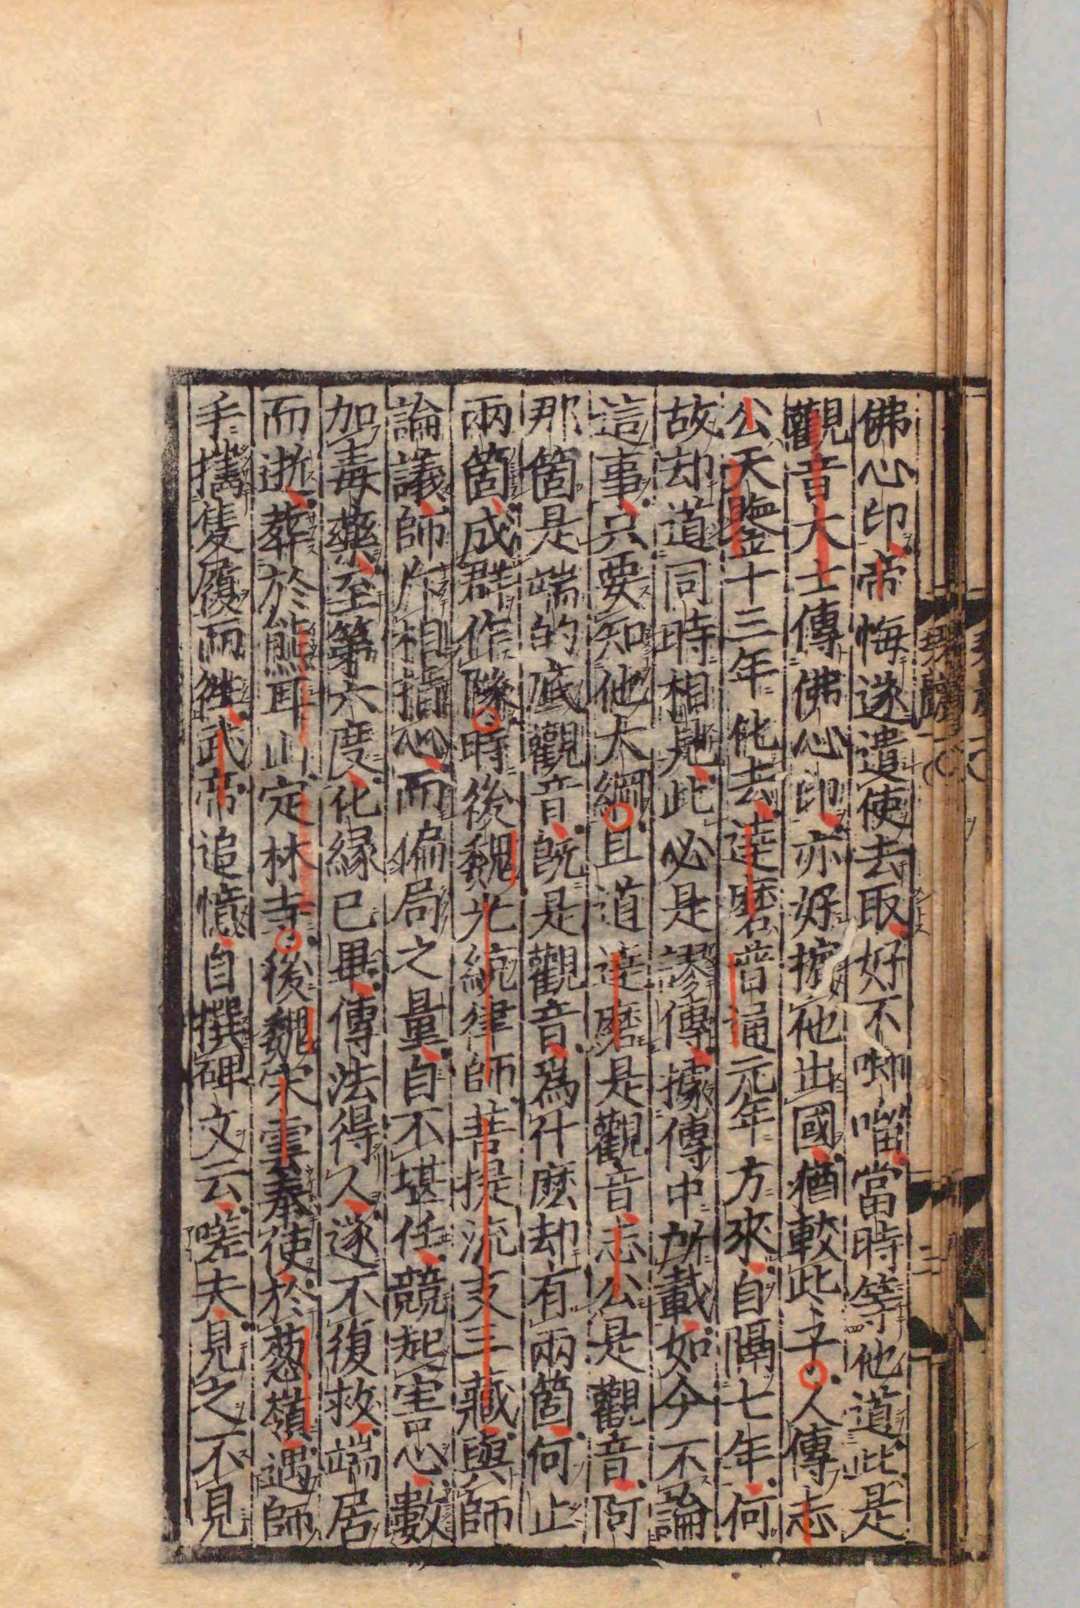 佛心印帝悔遂遣使去取好不唧㗌當時等他道此是
觀音大士傳佛心印亦好擯他出國猶較此子人傳志
公天鑒十三年化去達磨普通元年方來自隔七年何
故却道同時相見此必是謬傳據傳中所載如今不論
這事只要知他大綱且道達磨是觀音志公是觀音阿
那箇是端的底觀音既是觀音爲什麽却有兩箇何止
兩箇成群作隊時後魏光統律師菩提流支三藏與師
論議師斥相指心而偏局之量自不堪任競起害心數
加毒藥至第六度化緣已畢傳法得人遂不復救端居
而逝葬於熊耳山定林寺後魏宋雲奉使於葱嶺遇師
手攜隻履而徃武帝追憶自撰碑文云嗟夫見之不見